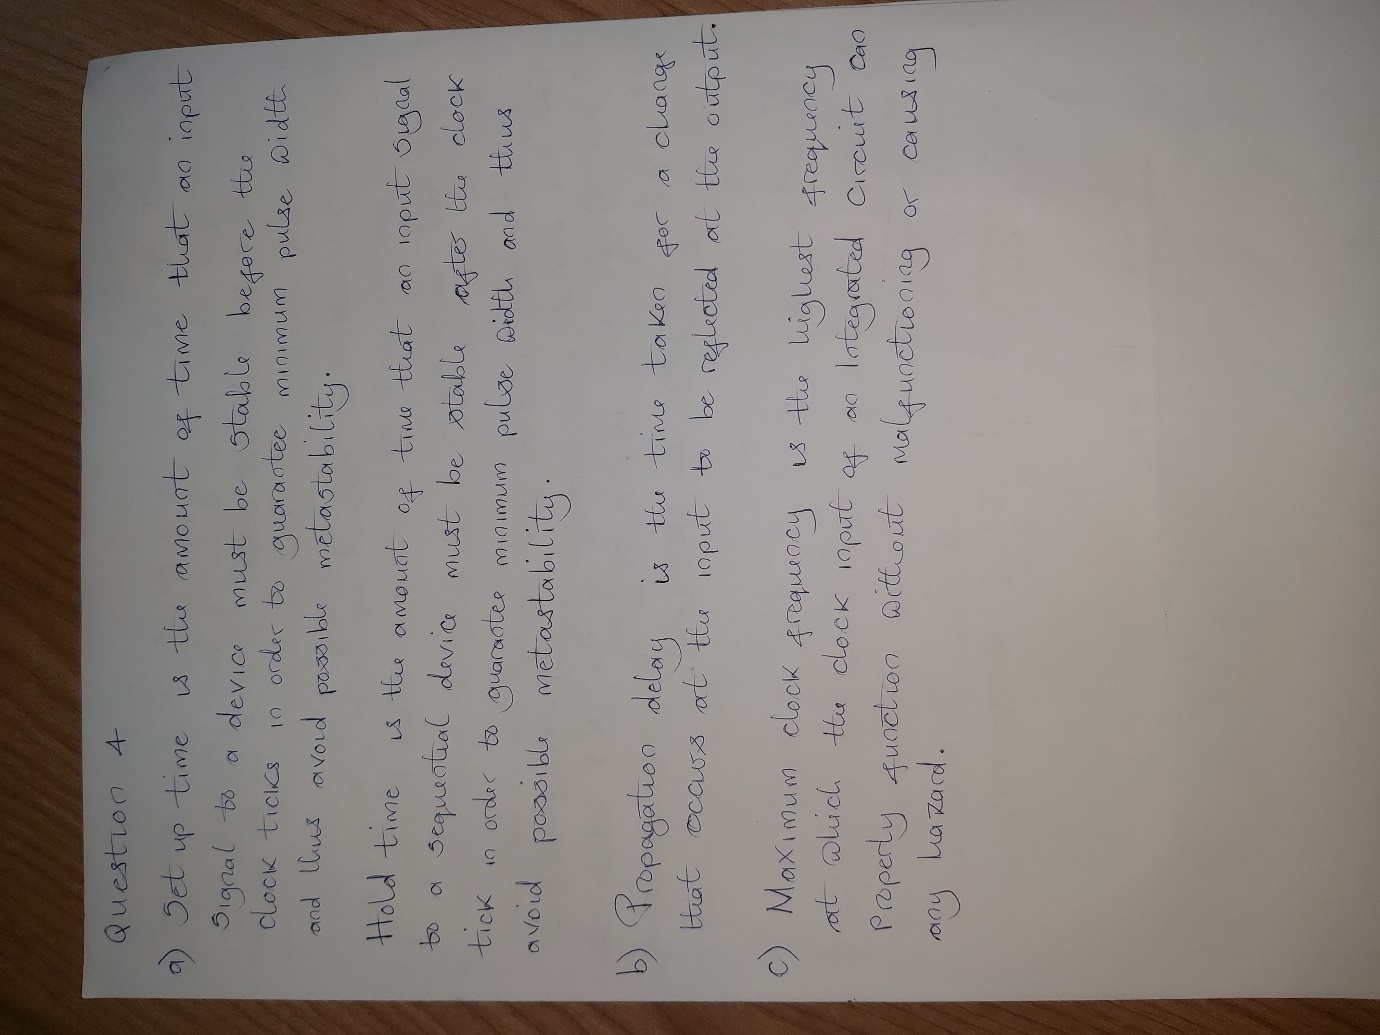 Question 4
a) Set up time is the amount of time that an input
signal to a device must be stable before the
clock ticks in order to guarantee minimum pulse width
and thus avoid possible metastability.
Hold time is the amount of time that an input signal
to a sequential device must be stable after the clock
tick in order to guarantee minimum pulse width and thus
avoid possible metastability.
b) Propagation delay is the time taken for a change
that occurs at the input to be reflected at the output.
c) Maximum clock frequency is the highest frequency
at which the clock input of an Integrated Circuit can
Properly function without malfunctioning or causing
any hazard.